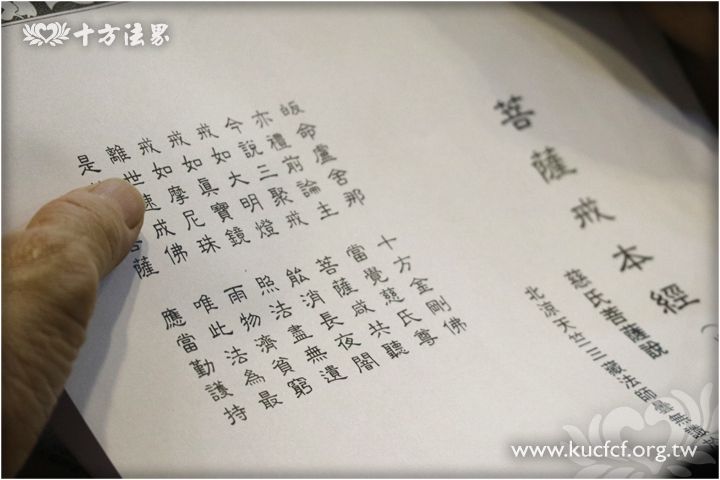 十方法界
菩薩戒本經
慈氏菩薩說
北涼天竺三藏法師曇無讖
皈命盧舍那 十方金剛佛
亦禮前論主 當覺慈氏尊
今說三聚戒 菩薩咸共聽
戒如大明燈 能消長夜闇
戒如眞寶鏡 照法盡無遺
戒如摩尼珠 雨物濟貧窮
離世速成佛 唯此法為最
是 菩薩 應當勤護持
www.kucfcf.org.tw